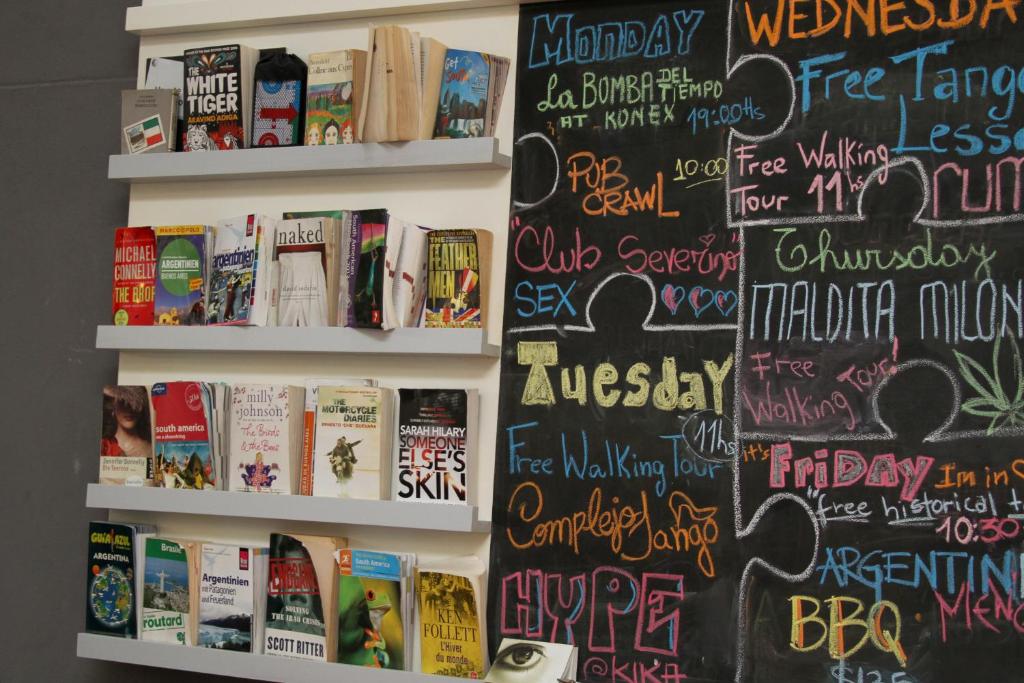 THE
WHITE
TIGER
ARAVIND ADIGA
Colline aux Cyprès
MICHAEL
CONNELLY
MARCO POLO
ARGENTINIEN
BUENOS AIRES
argentinien
naked
david sedaris
South American
THE
FEATHER
MEN
south america
on a shoestring
Jennifer Donnelly
Die Teerose
milly
johnson
The Birds
& the Bees
THE
MOTORCYCLE
DIARIES
ERNESTO 'CHE' GUEVARA
SARAH HILARY
SOMEONE
ELSE'S
SKIN
GUÍA AZUL
ARGENTINA
Brasile
routard
Argentinien
mit Patagonien
und Feuerland
SOLVING
THE IRAQ CRISIS
SCOTT RITTER
South America
KEN
FOLLETT
L'Hiver
du monde
MONDAY
La BOMBA DEL TIEMPO
AT KONEX 19:00Hs
PUB
CRAWL
10:00
"Club Severino"
SEX
Tuesday
11hs
Free Walking Tour
Complejo Tango
HYPE
@KIKA
WEDNESDA
Free Tang
Lesso
Free Walking
Tour 11hs
rum
Thursday
MALDITA MILON
Free
Walking Tour!
it's FRIDAY
I'm in
"free historical t
10:30
ARGENTIN
BBQ
MEN
$125